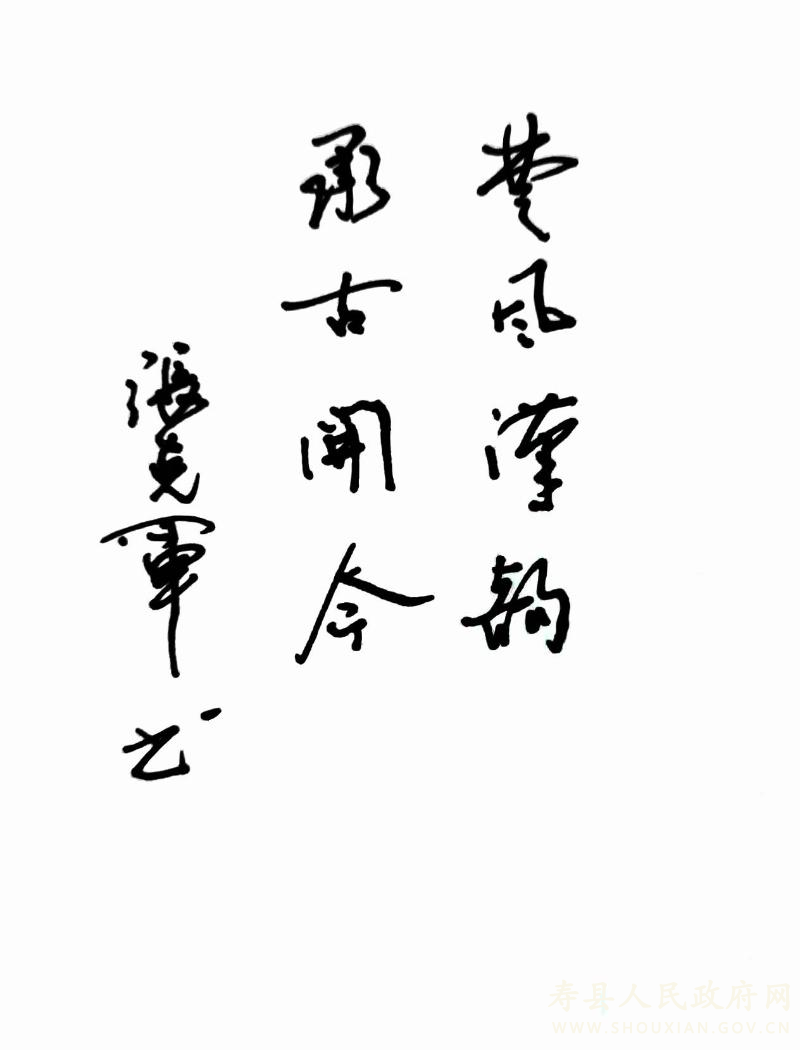 楚风漢韵
承古開今
張克軍书
寿县人民政府网
WWW.SHOUXIAN.GOV.CN